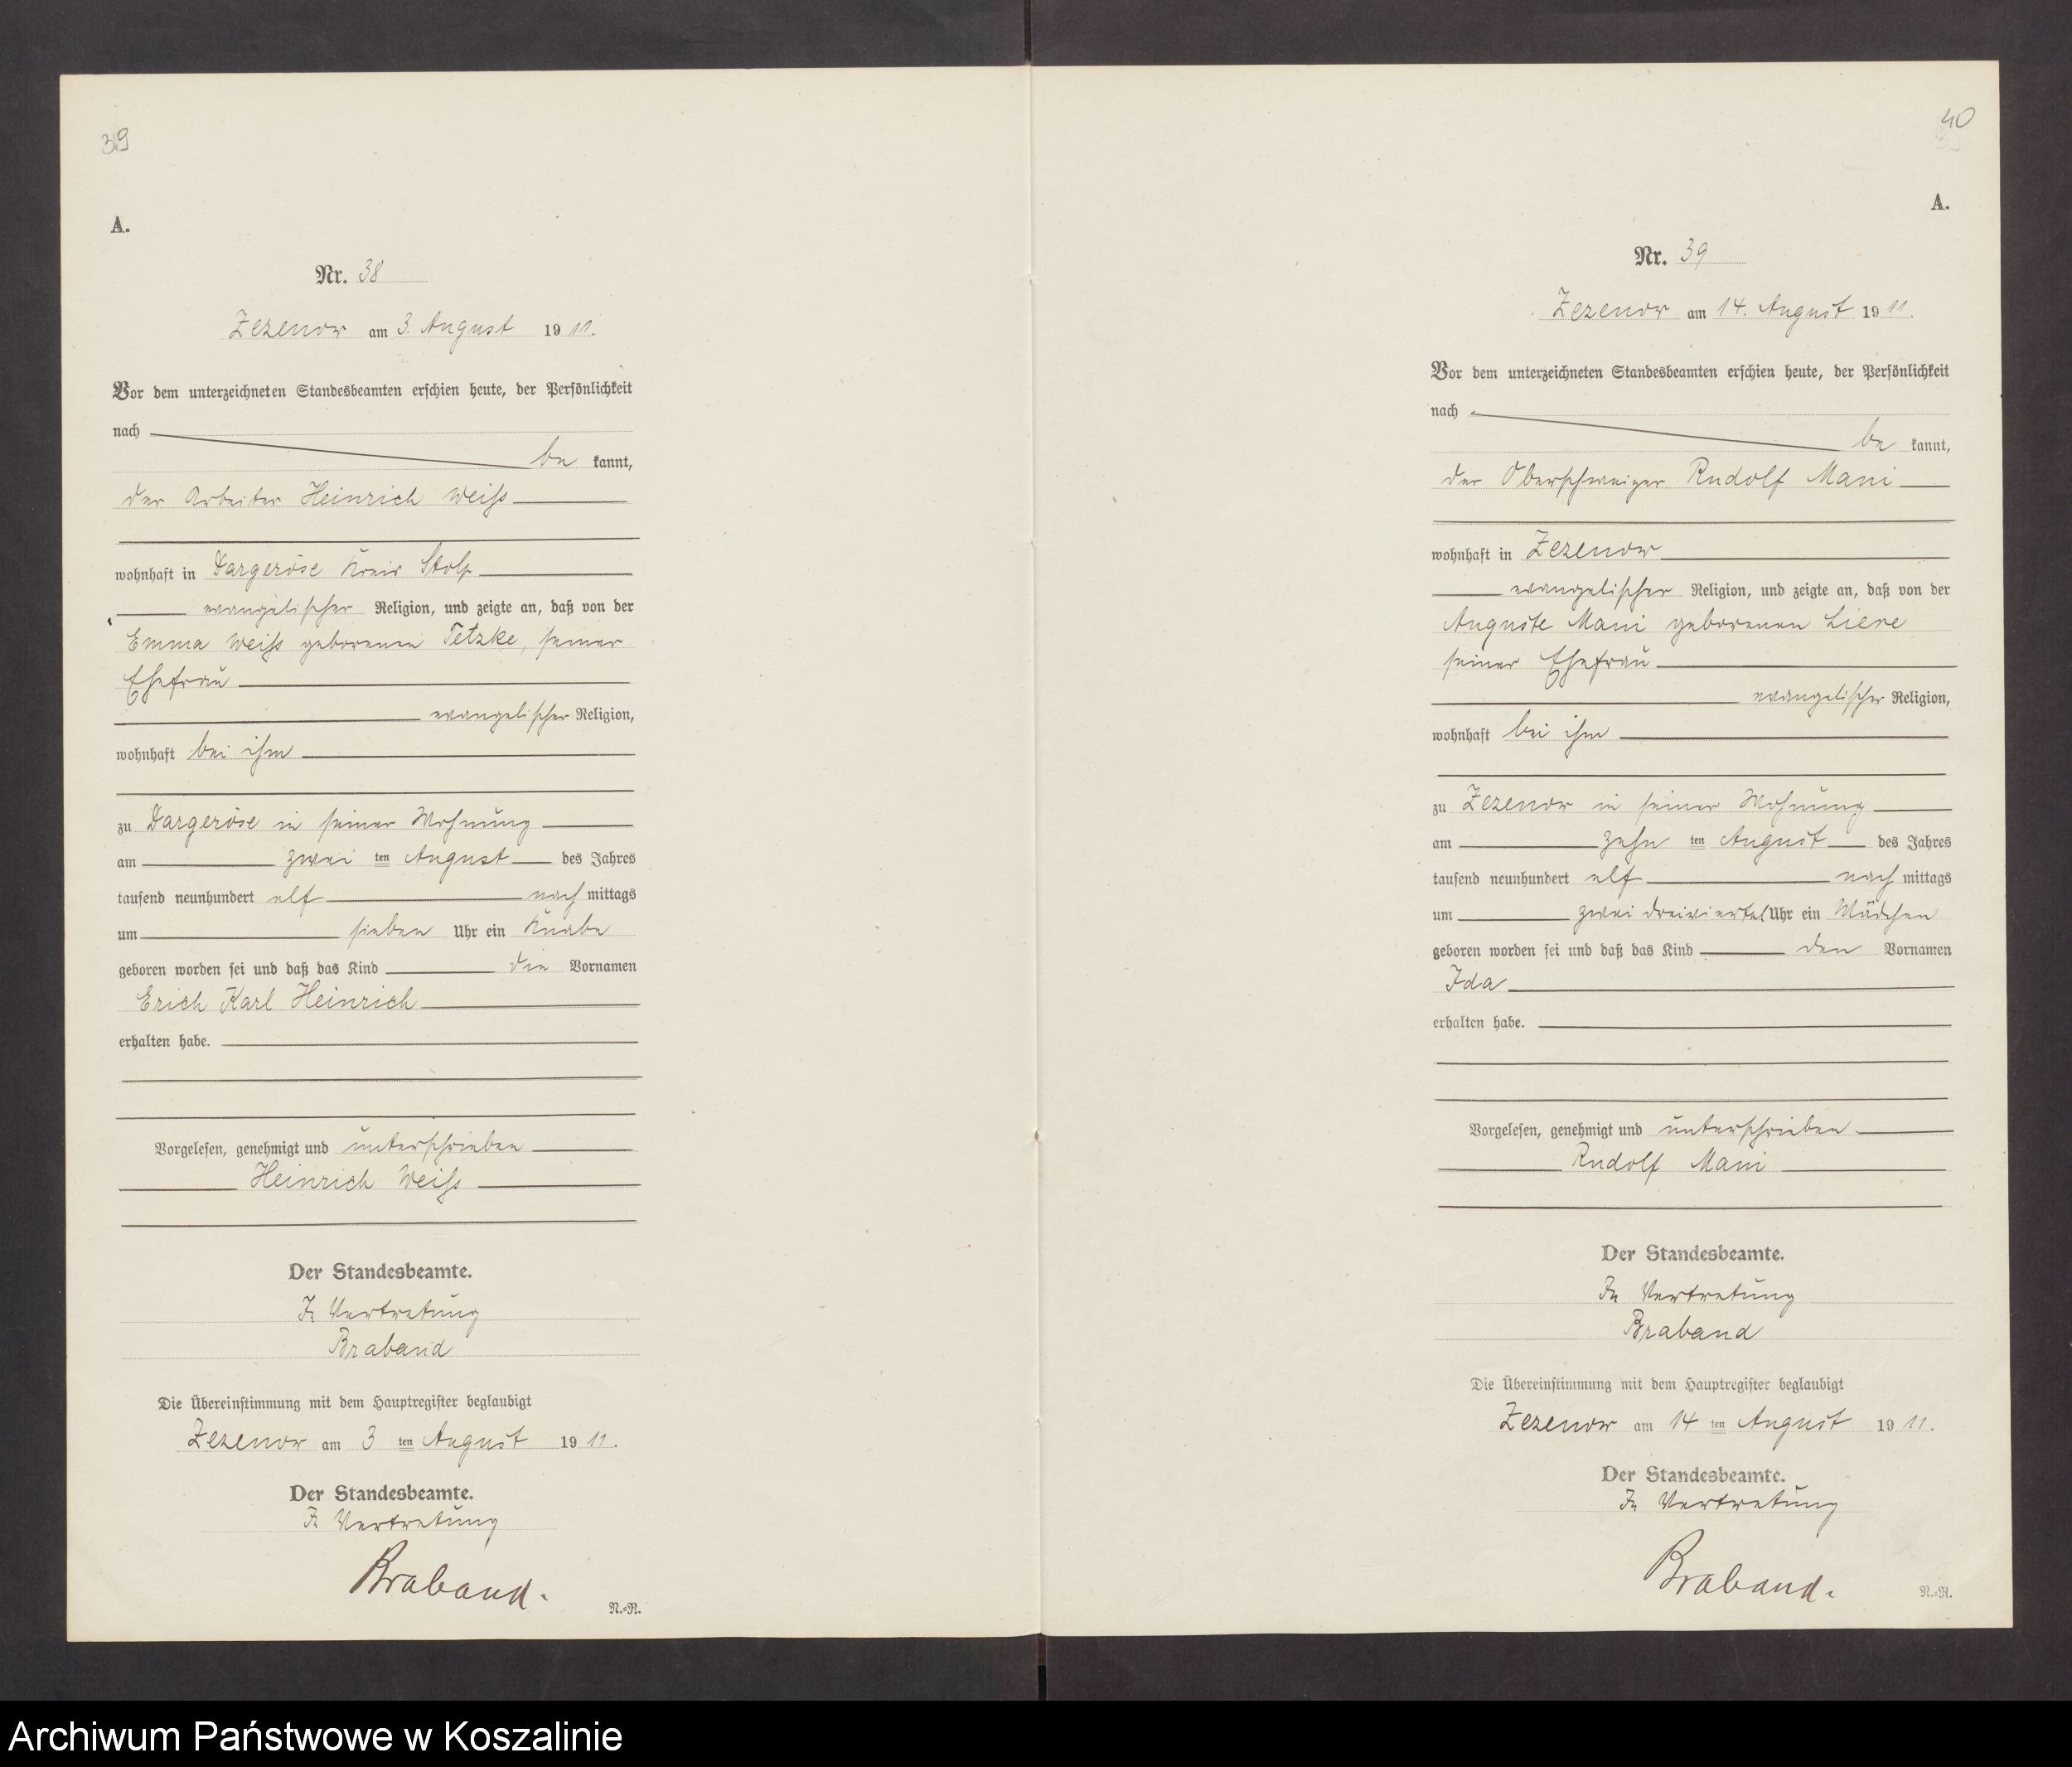 39
A.
Nr. 38
Zezenow am 3. August 1911.
Vor dem unterzeichneten Standesbeamten erschien heute, der Persönlichkeit
nach
be kannt,
der Arbeiter Heinrich Weiß
wohnhaft in Dargeröse Kreis Stolp
evangelischer Religion, und zeigte an, daß von der
Emma Weiß geborenen Tetzke, seiner
Ehefrau
evangelischer Religion,
wohnhaft bei ihm
zu Dargeröse in seiner Wohnung
am zwei ten August des Jahres
tausend neunhundert elf nach mittags
um sieben Uhr ein Knabe
geboren worden sei und daß das Kind die Vornamen
Erich Karl Heinrich
erhalten habe.
Vorgelesen, genehmigt und unterschrieben
Heinrich Weiß
Der Standesbeamte.
In Vertretung
Braband
Die Übereinstimmung mit dem Hauptregister beglaubigt
Zezenow am 3 ten August 1911.
Der Standesbeamte.
In Vertretung
Braband.
N.=R.
40
A.
Nr. 39
Zezenow am 14. August 1911.
Vor dem unterzeichneten Standesbeamten erschien heute, der Persönlichkeit
nach
be kannt,
der Oberschweizer Rudolf Mani
wohnhaft in Zezenow
evangelischer Religion, und zeigte an, daß von der
Auguste Mani geborenen Liere
seiner Ehefrau
evangelischer Religion,
wohnhaft bei ihm
zu Zezenow in seiner Wohnung
am zehn ten August des Jahres
tausend neunhundert elf nach mittags
um zwei dreiviertel Uhr ein Mädchen
geboren worden sei und daß das Kind den Vornamen
Ida
erhalten habe.
Vorgelesen, genehmigt und unterschrieben
Rudolf Mani
Der Standesbeamte.
In Vertretung
Braband
Die Übereinstimmung mit dem Hauptregister beglaubigt
Zezenow am 14 ten August 1911.
Der Standesbeamte.
In Vertretung
Braband.
N.=R.
Archiwum Państwowe w Koszalinie